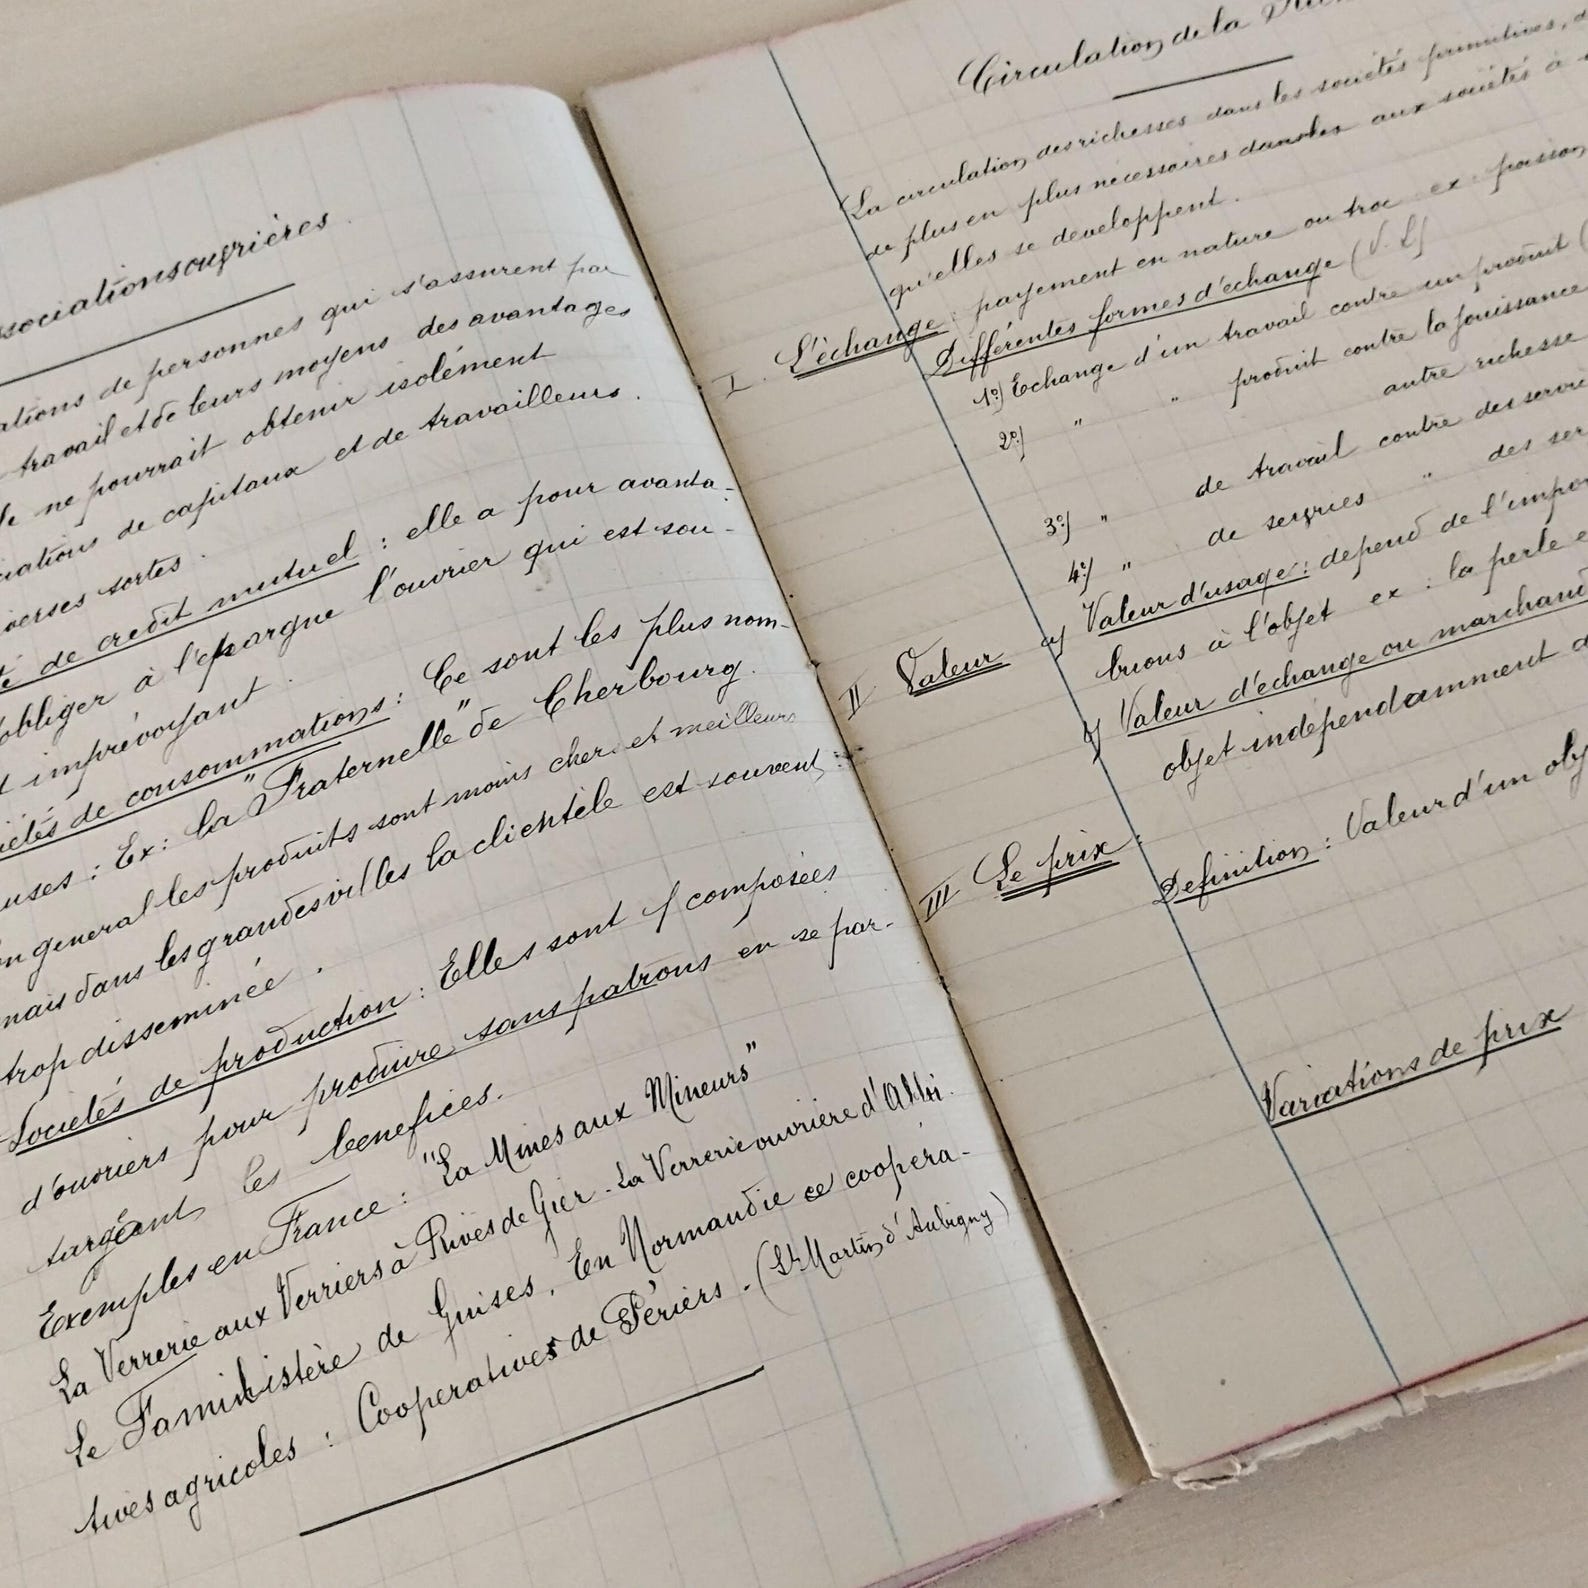 ssociations ouvrières.
ations de personnes qui s'assurent par
travail et de leurs moyens des avantages
le ne pourrait obtenir isolément
ciations de capitaux et de travailleurs.
verses sortes.
té de credit mutuel : elle a pour avanta-
'obliger à l'épargne l'ouvrier qui est sou-
t imprévoyant.
iétés de consommations : Ce sont les plus nom-
uses : Ex : la "Fraternelle" de Cherbourg.
en general les produits sont moins chers et meilleurs
mais dans les grandes villes la clientèle est souvent
trop disseminée.
Societés de production : Elles sont composées
d'ouvriers pour produire sans patrons en se par-
tageant les benefices.
Exemples en France : "La Mines aux Mineurs"
La Verrerie aux Verriers à Rives de Gier. La Verrerie ouvrière d'Albi.
Le Faministère de Guises. En Normandie ce coopéra-
tives agricoles : Cooperatives de Périers. (St Martin d'Aubigny)
Circulation de la
La circulation des richesses dans les sociétés primitives, d
de plus en plus necessaires dans les aux sociétés à
qu'elles se developpent.
I. L'échange : payement en nature ou troc ex : poisson
Différentes formes d'échange (V. L)
1º) Echange d'un travail contre un produit (
2º) " " produit contre la jouissance
autre richesse
3º) " de travail contre des servi
4º) " de services " des ser
II Valeur a) Valeur d'usage : depend de l'impor
buons à l'objet ex : la perle e
b) Valeur d'échange ou marchand
objet indépendamment d
III Le prix : Definition : Valeur d'un obj
Variations de prix